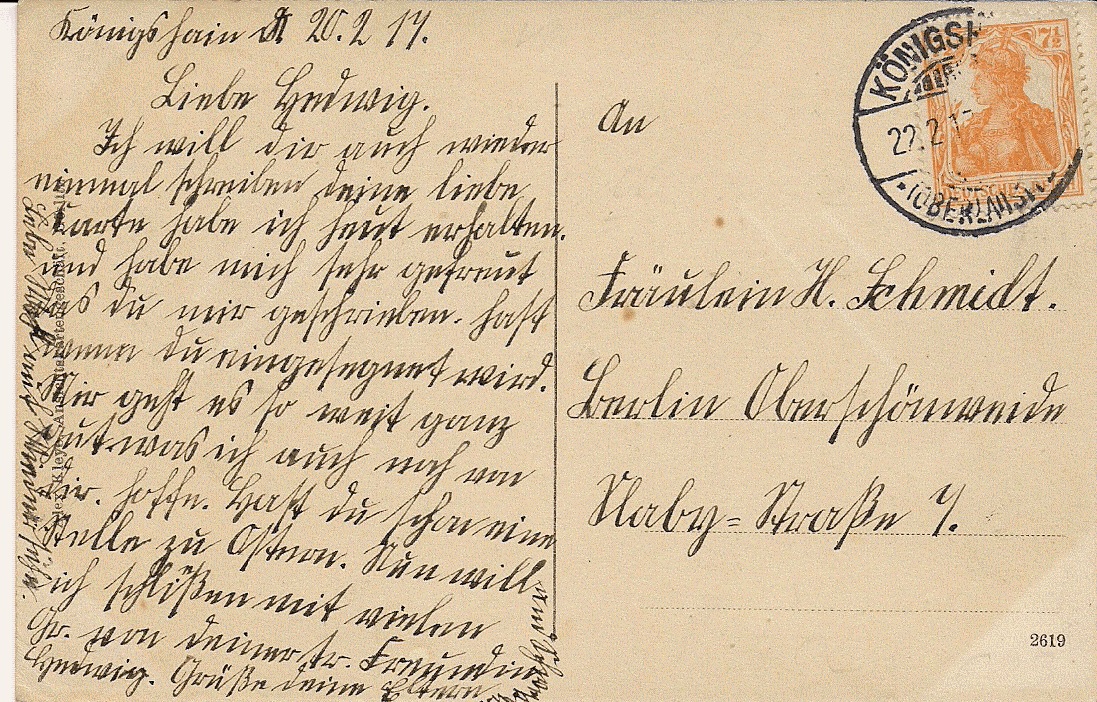 Königshain d 20.2 17.
Liebe Hedwig.
Ich will dir auch wieder
einmal schreiben deine liebe
Karte habe ich heut erhalten.
und habe mich sehr gefreut
das du mir geschrieben. hast
wenn du eingesegnet wird.
Mir geht es so weit ganz
gut. was ich auch noch von
dir. hoffe. Hast du schon eine
Stelle zu Ostern. Nun will
ich schlißen mit vielen
Gr. von deiner tr. Freundin
Hedwig. Grüße deine Eltern
und
An
Fräulein H. Schmidt.
Berlin Oberschönweide
Straße 7.
KÖNIGSH
22.2.17
(OBERLAUSI
7½
2619